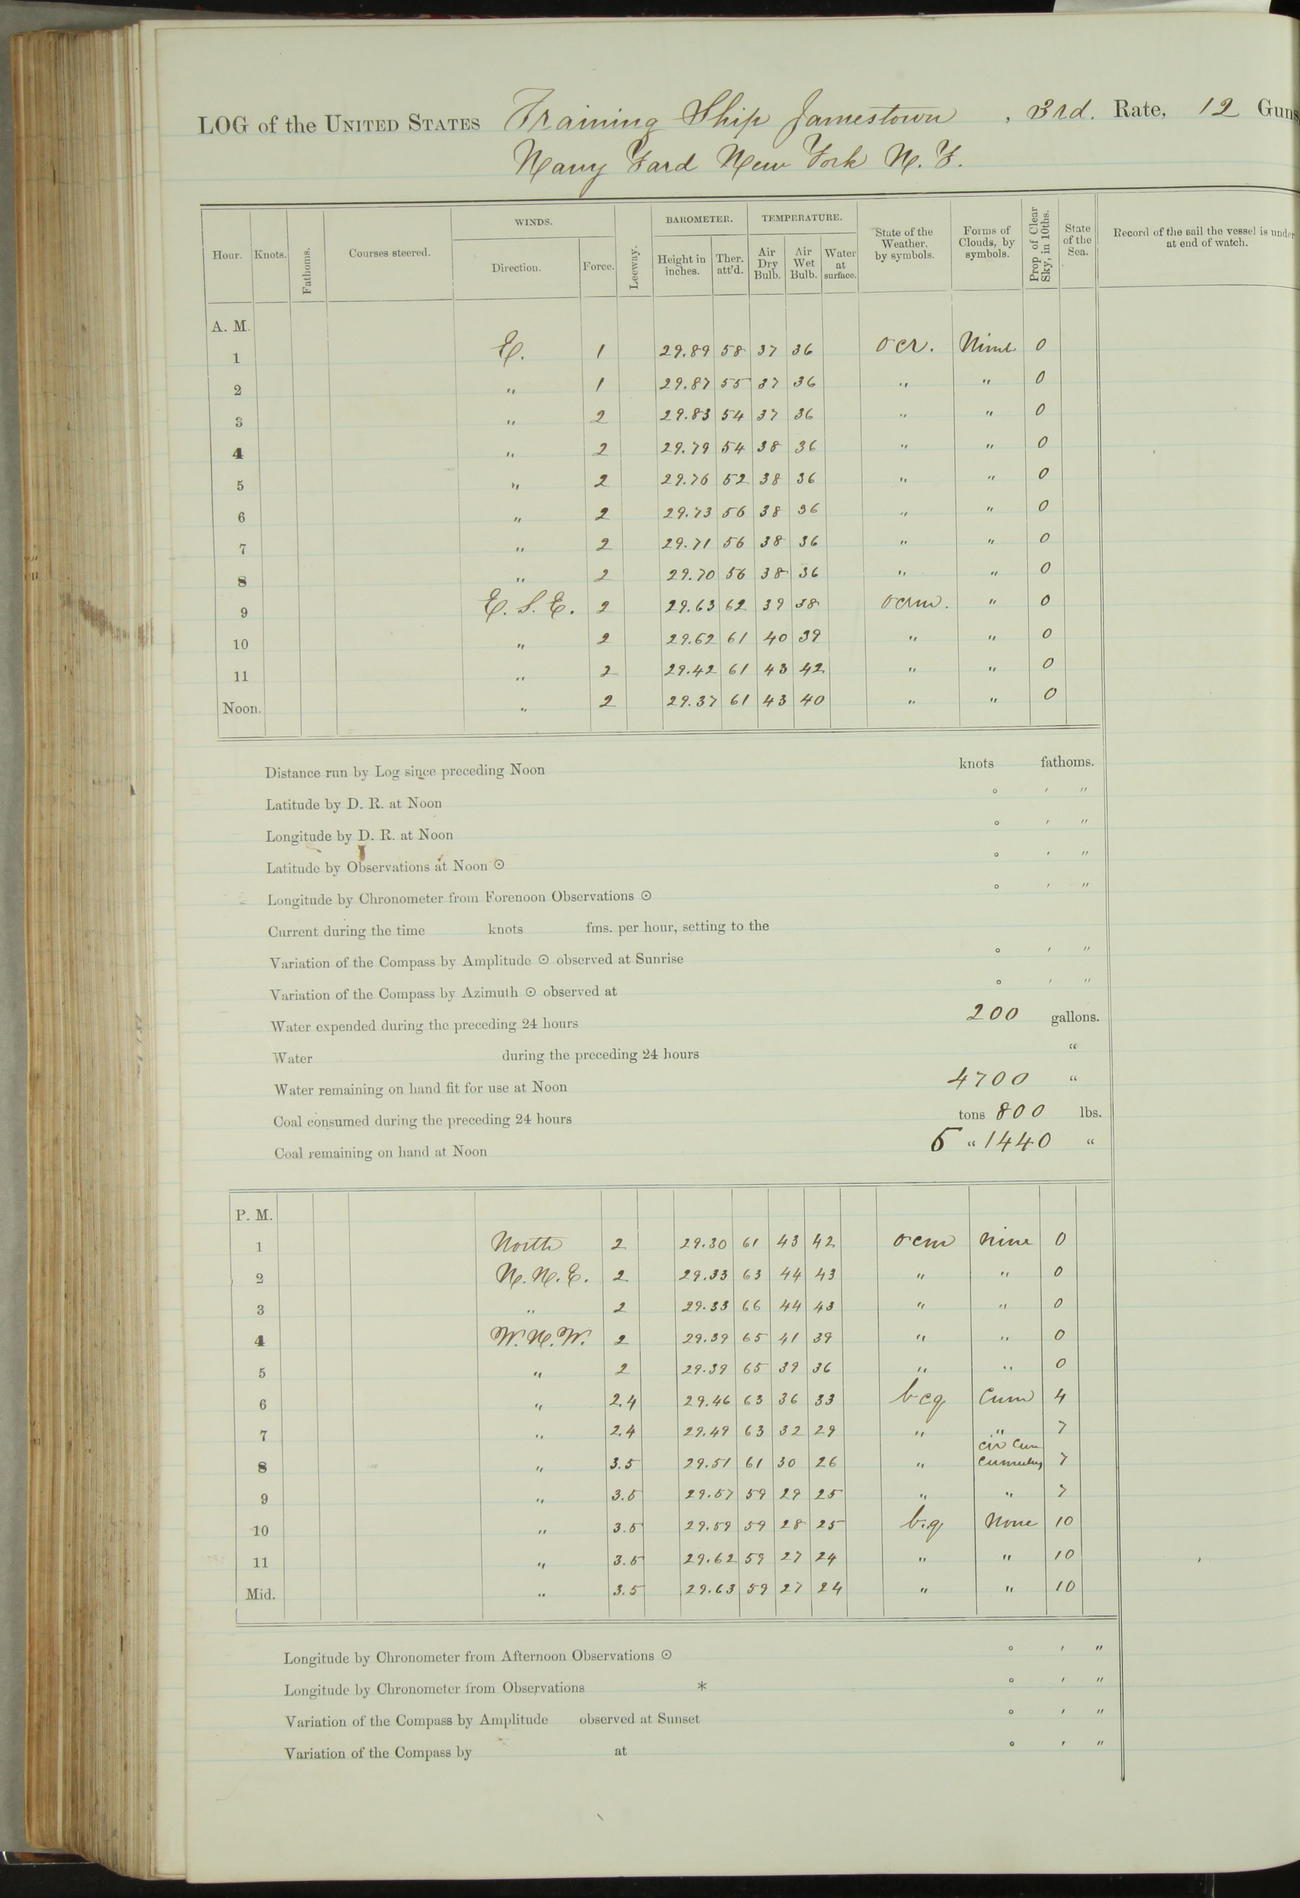 LOG of the UNITED STATES Training Ship Jamestown, 3rd. Rate, 12 Guns
Navy Yard New York N. Y.
WINDS. BAROMETER. TEMPERATURE.
Hour. Knots. Fathoms. Courses steered. Direction. Force. Leeway. Height in inches. Ther. att'd. Air Dry Bulb. Air Wet Bulb. Water at surface. State of the Weather, by symbols. Forms of Clouds, by symbols. Prop of Clear Sky, in 10ths. State of the Sea. Record of the sail the vessel is under at end of watch.
A. M.
1 E. 1 29.89 58 37 36 ocr. Nimb 0
2 " 1 29.87 55 37 36 " " 0
3 " 2 29.83 54 37 36 " " 0
4 " 2 29.79 54 38 36 " " 0
5 " 2 29.76 52 38 36 " " 0
6 " 2 29.73 56 38 36 " " 0
7 " 2 29.71 56 38 36 " " 0
8 " 2 29.70 56 38 36 " " 0
9 E. S. E. 2 29.63 62 39 38 ocrm. " 0
10 " 2 29.62 61 40 39 " " 0
11 " 2 29.42 61 43 42 " " 0
Noon. " 2 29.37 61 43 40 " " 0
Distance run by Log since preceding Noon knots fathoms.
Latitude by D. R. at Noon ° ′ ″
Longitude by D. R. at Noon ° ′ ″
Latitude by Observations at Noon ⊙ ° ′ ″
Longitude by Chronometer from Forenoon Observations ⊙ ° ′ ″
Current during the time knots fms. per hour, setting to the
Variation of the Compass by Amplitude ⊙ observed at Sunrise ° ′ ″
Variation of the Compass by Azimuth ⊙ observed at ° ′ ″
Water expended during the preceding 24 hours 200 gallons.
Water during the preceding 24 hours "
Water remaining on hand fit for use at Noon 4700 "
Coal consumed during the preceding 24 hours tons 800 lbs.
Coal remaining on hand at Noon 5 " 1440 "
P. M.
1 North 2 29.30 61 43 42 ocm Nim 0
2 N. N. E. 2 29.33 63 44 43 " " 0
3 " 2 29.33 66 44 43 " " 0
4 W. N. W. 2 29.39 65 41 39 " " 0
5 " 2 29.39 65 39 36 " " 0
6 " 2.4 29.46 63 36 33 bcq Cum 4
7 " 2.4 29.49 63 32 29 " " 7
8 " 3.5 29.51 61 30 26 " Cir Cum 7
9 " 3.5 29.57 59 29 25 " " 7
10 " 3.5 29.59 59 28 25 b.q None 10
11 " 3.5 29.62 59 27 24 " " 10
Mid. " 3.5 29.63 59 27 24 " " 10
Longitude by Chronometer from Afternoon Observations ⊙ ° ′ ″
Longitude by Chronometer from Observations * ° ′ ″
Variation of the Compass by Amplitude observed at Sunset ° ′ ″
Variation of the Compass by at ° ′ ″